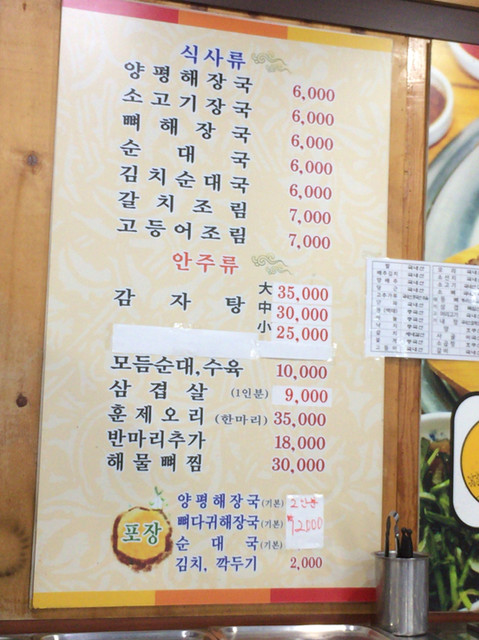 식사류
양평해장국 6,000
소고기장국 6,000
뼈해장국 6,000
순대국 6,000
김치순대국 6,000
갈치조림 7,000
고등어조림 7,000
안주류
감자탕 大 35,000
中 30,000
小 25,000
모듬순대,수육 10,000
삼겹살 (1인분) 9,000
훈제오리 (한마리) 35,000
반마리추가 18,000
해물뼈찜 30,000
포장
양평해장국(기본) 2인분
뼈다귀해장국(기본) 12,000
순대국(기본)
김치, 깍두기 2,000